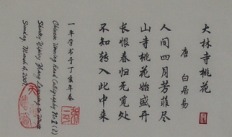 大林寺桃花
唐 白居易
人间四月芳菲尽
山寺桃花始盛开
长恨春归无觅处
不知转入此中来
一年学书于丁亥年春
Chinese Drawing And Calligraphy
Sunday March 4, 2007